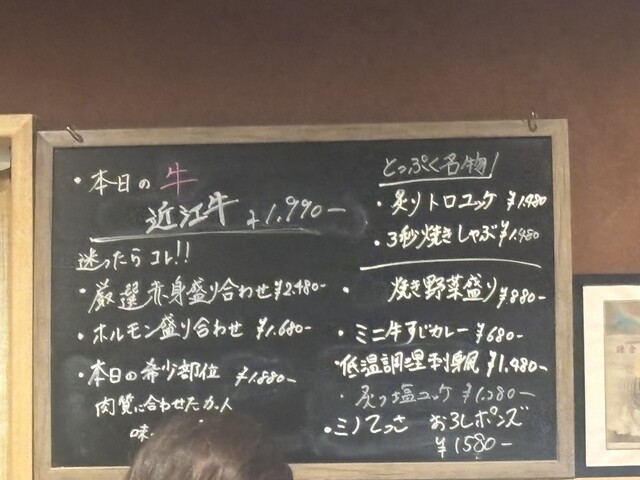 ・本日の 牛
近江牛 +1,990-
迷ったら コレ!!
・厳選赤身盛り合わせ ¥2,480-
・ホルモン盛り合わせ ¥1,680-
・本日の希少部位 ¥1,880-
肉質に合わせたカット
味
とっぷく名物
・炙りトロユッケ ¥1,480
・3秒焼きしゃぶ ¥1,480
・焼き野菜盛り ¥880-
・ミニ牛すじカレー ¥680-
・低温調理刺身風 ¥1,480-
・炙り塩ユッケ ¥1,280-
・ミノてっさ おろしポンズ
¥1580-